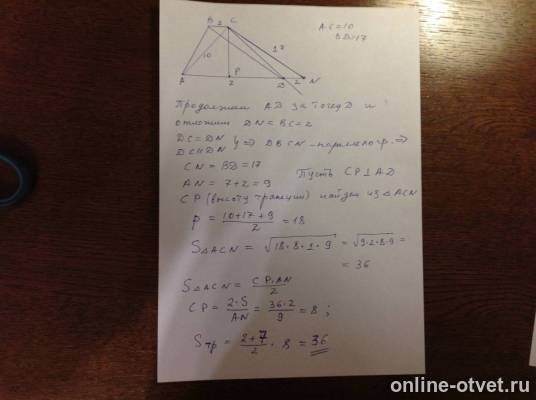 B 2 C
AC=10
BD=17
10
17
A P D 2 N
7
Продолжим AD за точку D и
отложим DN=BC=2
DC=DN
DC||DN } => DBCN - параллелогр. =>
CN = BD = 17
Пусть CP⊥AD
AN = 7+2 = 9
CP (высоту трапеции) найдем из △ACN
p = (10+17+9)/2 = 18
S△ACN = √(18·8·1·9) = √(9·2·8·9) =
= 36
S△ACN = CP·AN/2
CP = 2·S/AN = 36·2/9 = 8 ;
Sтр = (2+7)/2 · 8 = 36
online-otvet.ru